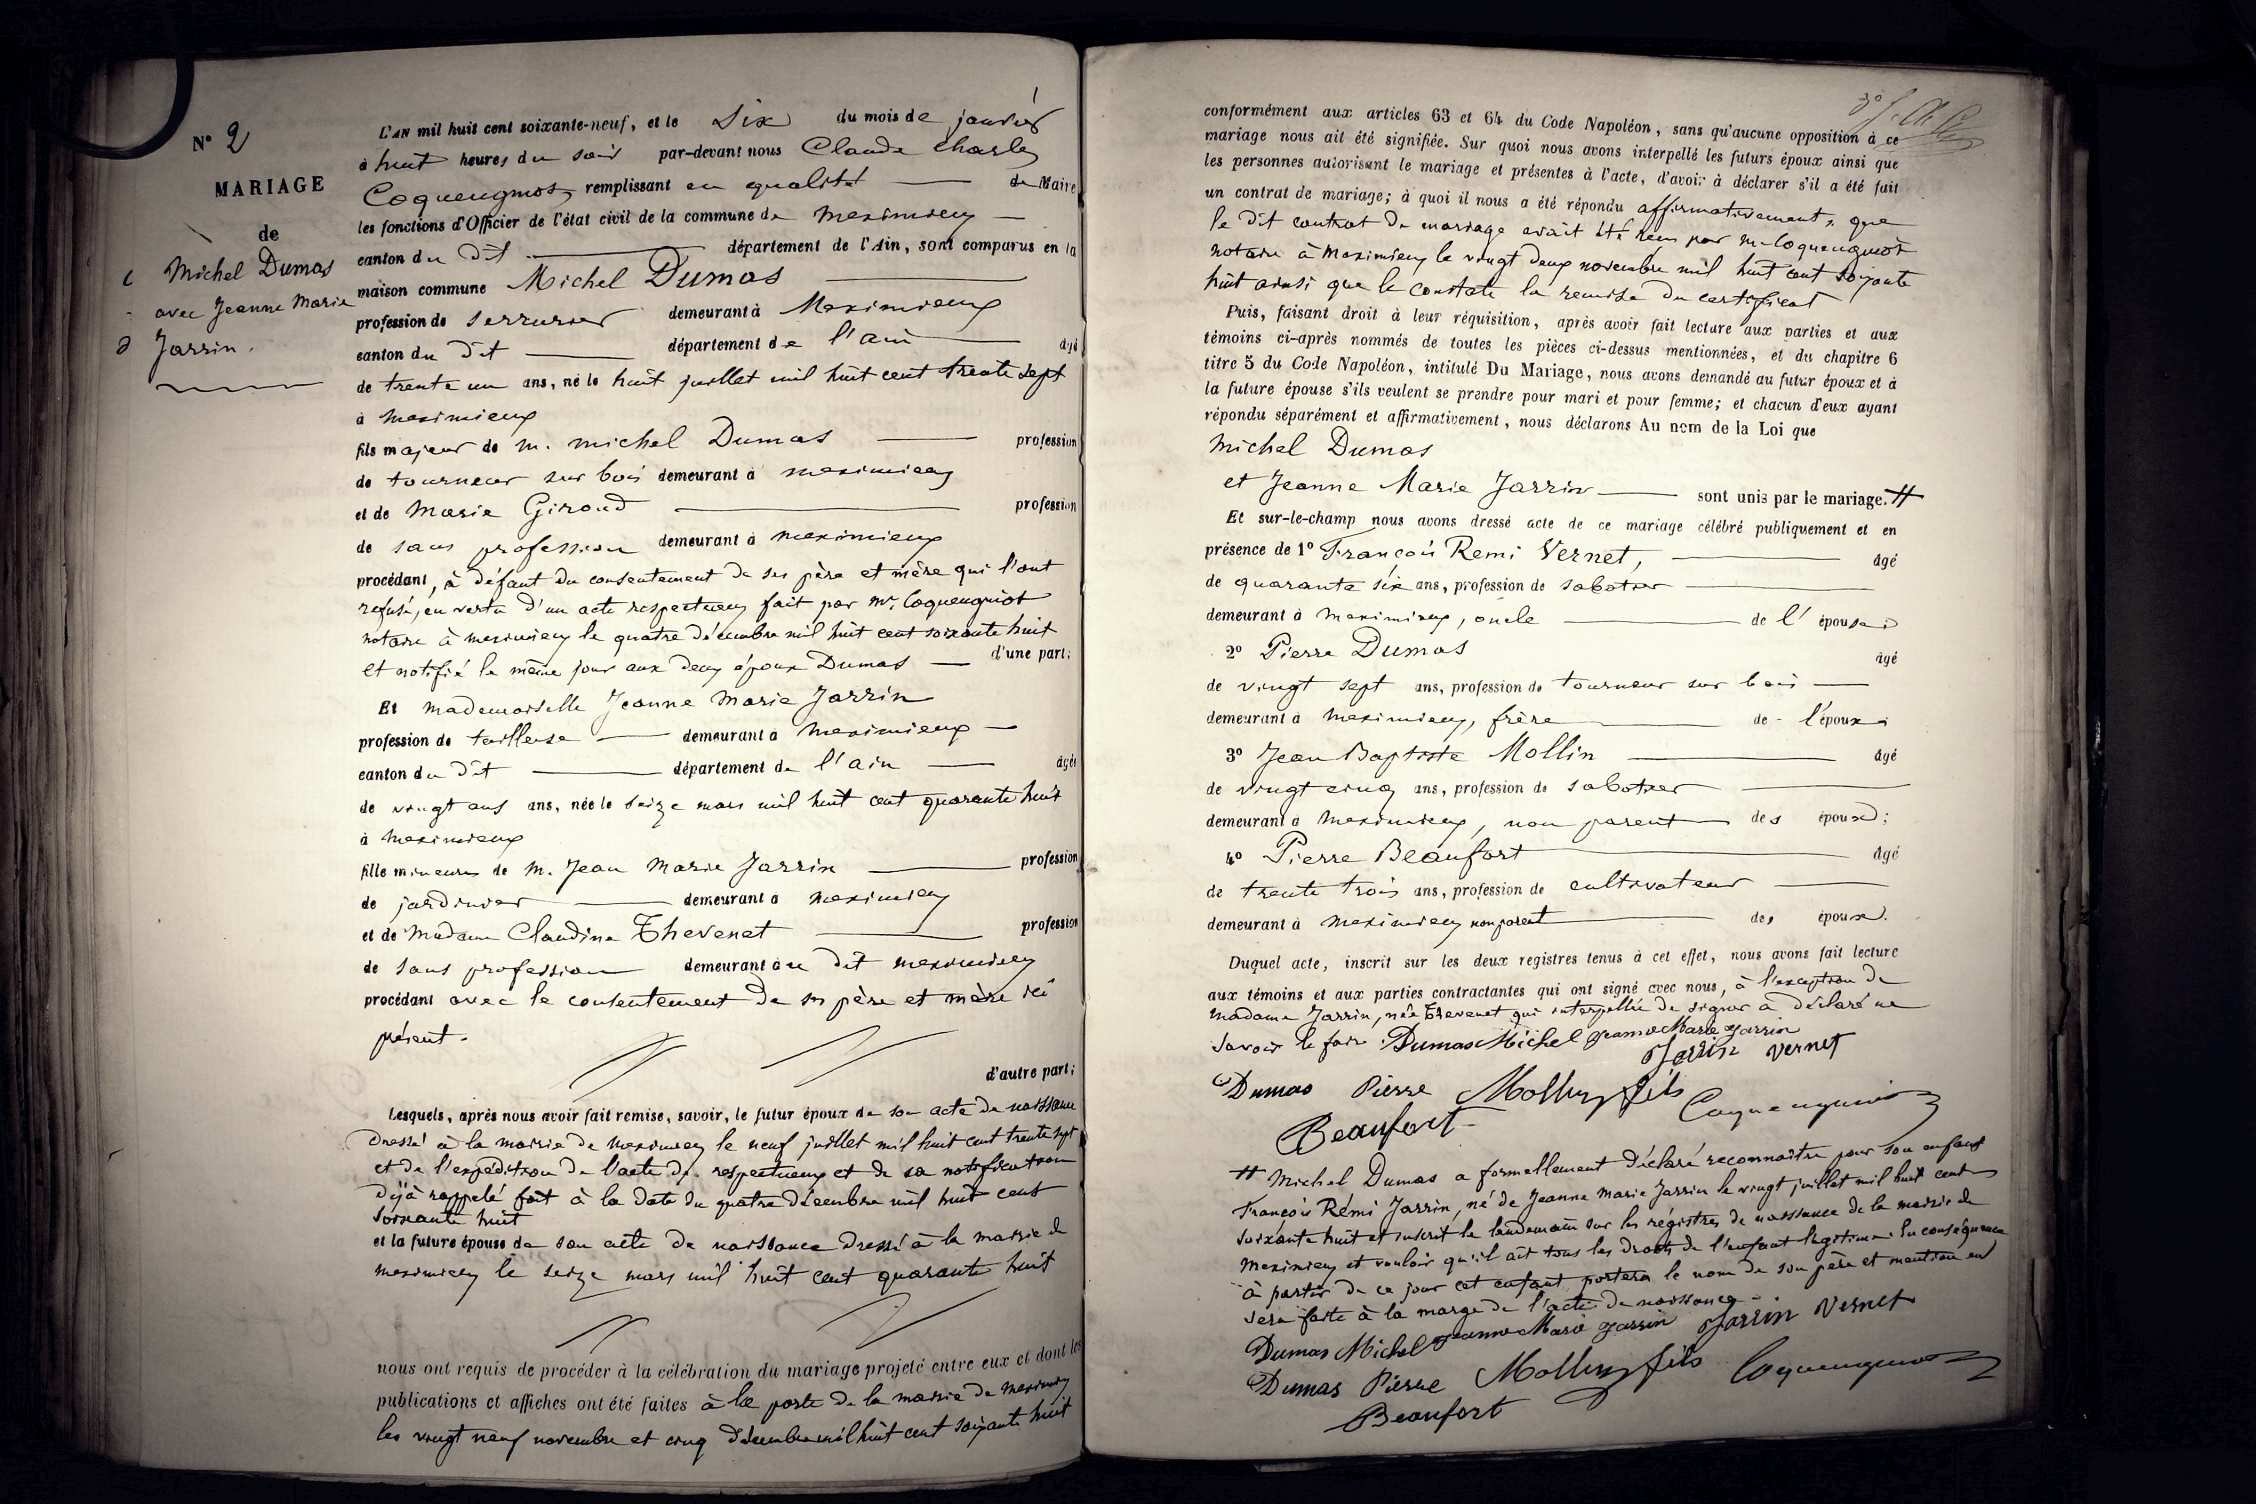 N° 2
MARIAGE
de
Michel Dumas
avec Jeanne Marie
Jarrin.
L'AN mil huit cent soixante-neuf, et le Six du mois de janvier
à huit heures du soir par-devant nous Claude Charles
Coquengniot remplissant en qualité de Maire
les fonctions d'Officier de l'état civil de la commune de Meximieux
canton du dit département de l'Ain, sont comparus en la
maison commune Michel Dumas
profession de serrurier demeurant à Meximieux
canton du dit département de l'ain âgé
de trente un ans, né le huit juillet mil huit cent trente sept
à meximieux
fils majeur de m. michel Dumas profession
de tourneur sur bois demeurant à meximieux
et de Marie Giroud profession
de sans profession demeurant à meximieux
procédant, à défaut du consentement de ses père et mère qui l'ont
refusé, en vertu d'un acte respectueux fait par mr. Coquengniot
notaire à meximieux le quatre décembre mil huit cent soixante huit
et notifié le même jour aux deux époux Dumas d'une part;
Et mademoiselle Jeanne Marie Jarrin
profession de tailleuse demeurant à Meximieux
canton du dit département de l'ain âgée
de vingt ans ans, née le seize mars mil huit cent quarante huit
à meximieux
fille mineure de M. Jean Marie Jarrin profession
de jardinier demeurant à meximieux
et de Madame Claudine Thevenet profession
de sans profession demeurant au dit meximieux
procédant avec le consentement de ses père et mère ici
présent.
d'autre part;
Lesquels, après nous avoir fait remise, savoir, le futur époux de son acte de naissance
dressé à la mairie de Meximieux le neuf juillet mil huit cent trente sept
et de l'expédition de l'acte respectueux et de sa notification
déjà rappelé fait à la date du quatre décembre mil huit cent
soixante huit
et la future épouse de son acte de naissance dressé à la mairie de
meximieux le seize mars mil huit cent quarante huit
nous ont requis de procéder à la célébration du mariage projeté entre eux et dont les
publications et affiches ont été faites à la porte de la mairie de meximieux
les vingt neuf novembre et cinq décembre mil huit cent soixante huit
conformément aux articles 63 et 64 du Code Napoléon, sans qu'aucune opposition à ce
mariage nous ait été signifiée. Sur quoi nous avons interpellé les futurs époux ainsi que
les personnes autorisant le mariage et présentes à l'acte, d'avoir à déclarer s'il a été fait
un contrat de mariage; à quoi il nous a été répondu affirmativement, que
le dit contrat de mariage avait été reçu par m. Coquengniot
notaire à Meximieux le vingt deux novembre mil huit cent soixante
huit ainsi que le constate la remise du certificat
Puis, faisant droit à leur réquisition, après avoir fait lecture aux parties et aux
témoins ci-après nommés de toutes les pièces ci-dessus mentionnées, et du chapitre 6
titre 5 du Code Napoléon, intitulé Du Mariage, nous avons demandé au futur époux et à
la future épouse s'ils veulent se prendre pour mari et pour femme; et chacun d'eux ayant
répondu séparément et affirmativement, nous déclarons Au nom de la Loi que
Michel Dumas
et Jeanne Marie Jarrin sont unis par le mariage. #
Et sur-le-champ nous avons dressé acte de ce mariage célébré publiquement et en
présence de 1° François Remi Vernet, âgé
de quarante six ans, profession de sabotier
demeurant à meximieux, oncle de l'épouse;
2° Pierre Dumas âgé
de vingt sept ans, profession de tourneur sur bois
demeurant à meximieux, frère de l'époux;
3° Jean Baptiste Mollin âgé
de vingt cinq ans, profession de sabotier
demeurant à meximieux, non parent des époux;
4° Pierre Beaufort âgé
de trente trois ans, profession de cultivateur
demeurant à meximieux non parent des époux.
Duquel acte, inscrit sur les deux registres tenus à cet effet, nous avons fait lecture
aux témoins et aux parties contractantes qui ont signé avec nous, à l'exception de
madame Jarrin, née Thevenet qui interpellée de signer a déclaré ne
savoir le faire. Dumas Michel Jeanne Marie Jarrin
Jarrin Vernet
Dumas Pierre Mollin fils Coquengniot
Beaufort
# Michel Dumas a formellement déclaré reconnaître pour son enfant
François Rémi Jarrin, né de Jeanne Marie Jarrin le vingt juillet mil huit cent
soixante huit et inscrit le lendemain sur les régistres de naissance de la mairie de
Meximieux et vouloir qu'il ait tous les droits de l'enfant légitime. En conséquence
à partir de ce jour cet enfant portera le nom de son père et mention en
sera faite à la marge de l'acte de naissance.
Dumas Michel Jeanne Marie Jarrin Jarrin Vernet
Dumas Pierre Mollin fils Coquengniot
Beaufort